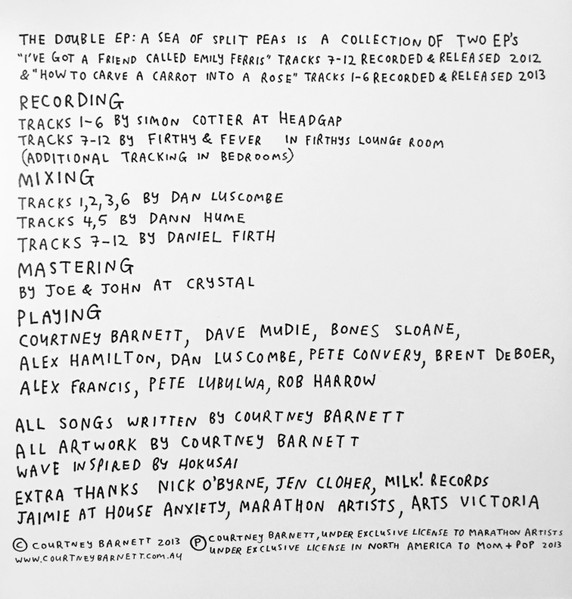 THE DOUBLE EP: A SEA OF SPLIT PEAS IS A COLLECTION OF TWO EP'S
"I'VE GOT A FRIEND CALLED EMILY FERRIS" TRACKS 7-12 RECORDED & RELEASED 2012
& "HOW TO CARVE A CARROT INTO A ROSE" TRACKS 1-6 RECORDED & RELEASED 2013
RECORDING
TRACKS 1-6 BY SIMON COTTER AT HEADGAP
TRACKS 7-12 BY FIRTHY & FEVER IN FIRTHYS LOUNGE ROOM
(ADDITIONAL TRACKING IN BEDROOMS)
MIXING
TRACKS 1,2,3,6 BY DAN LUSCOMBE
TRACKS 4,5 BY DANN HUME
TRACKS 7-12 BY DANIEL FIRTH
MASTERING
BY JOE & JOHN AT CRYSTAL
PLAYING
COURTNEY BARNETT, DAVE MUDIE, BONES SLOANE,
ALEX HAMILTON, DAN LUSCOMBE, PETE CONVERY, BRENT DEBOER,
ALEX FRANCIS, PETE LUBULWA, ROB HARROW
ALL SONGS WRITTEN BY COURTNEY BARNETT
ALL ARTWORK BY COURTNEY BARNETT
WAVE INSPIRED BY HOKUSAI
EXTRA THANKS NICK O'BYRNE, JEN CLOHER, MILK! RECORDS
JAIMIE AT HOUSE ANXIETY, MARATHON ARTISTS, ARTS VICTORIA
© COURTNEY BARNETT 2013 ℗ COURTNEY BARNETT, UNDER EXCLUSIVE LICENSE TO MARATHON ARTISTS
WWW.COURTNEYBARNETT.COM.AU UNDER EXCLUSIVE LICENSE IN NORTH AMERICA TO MOM + POP 2013